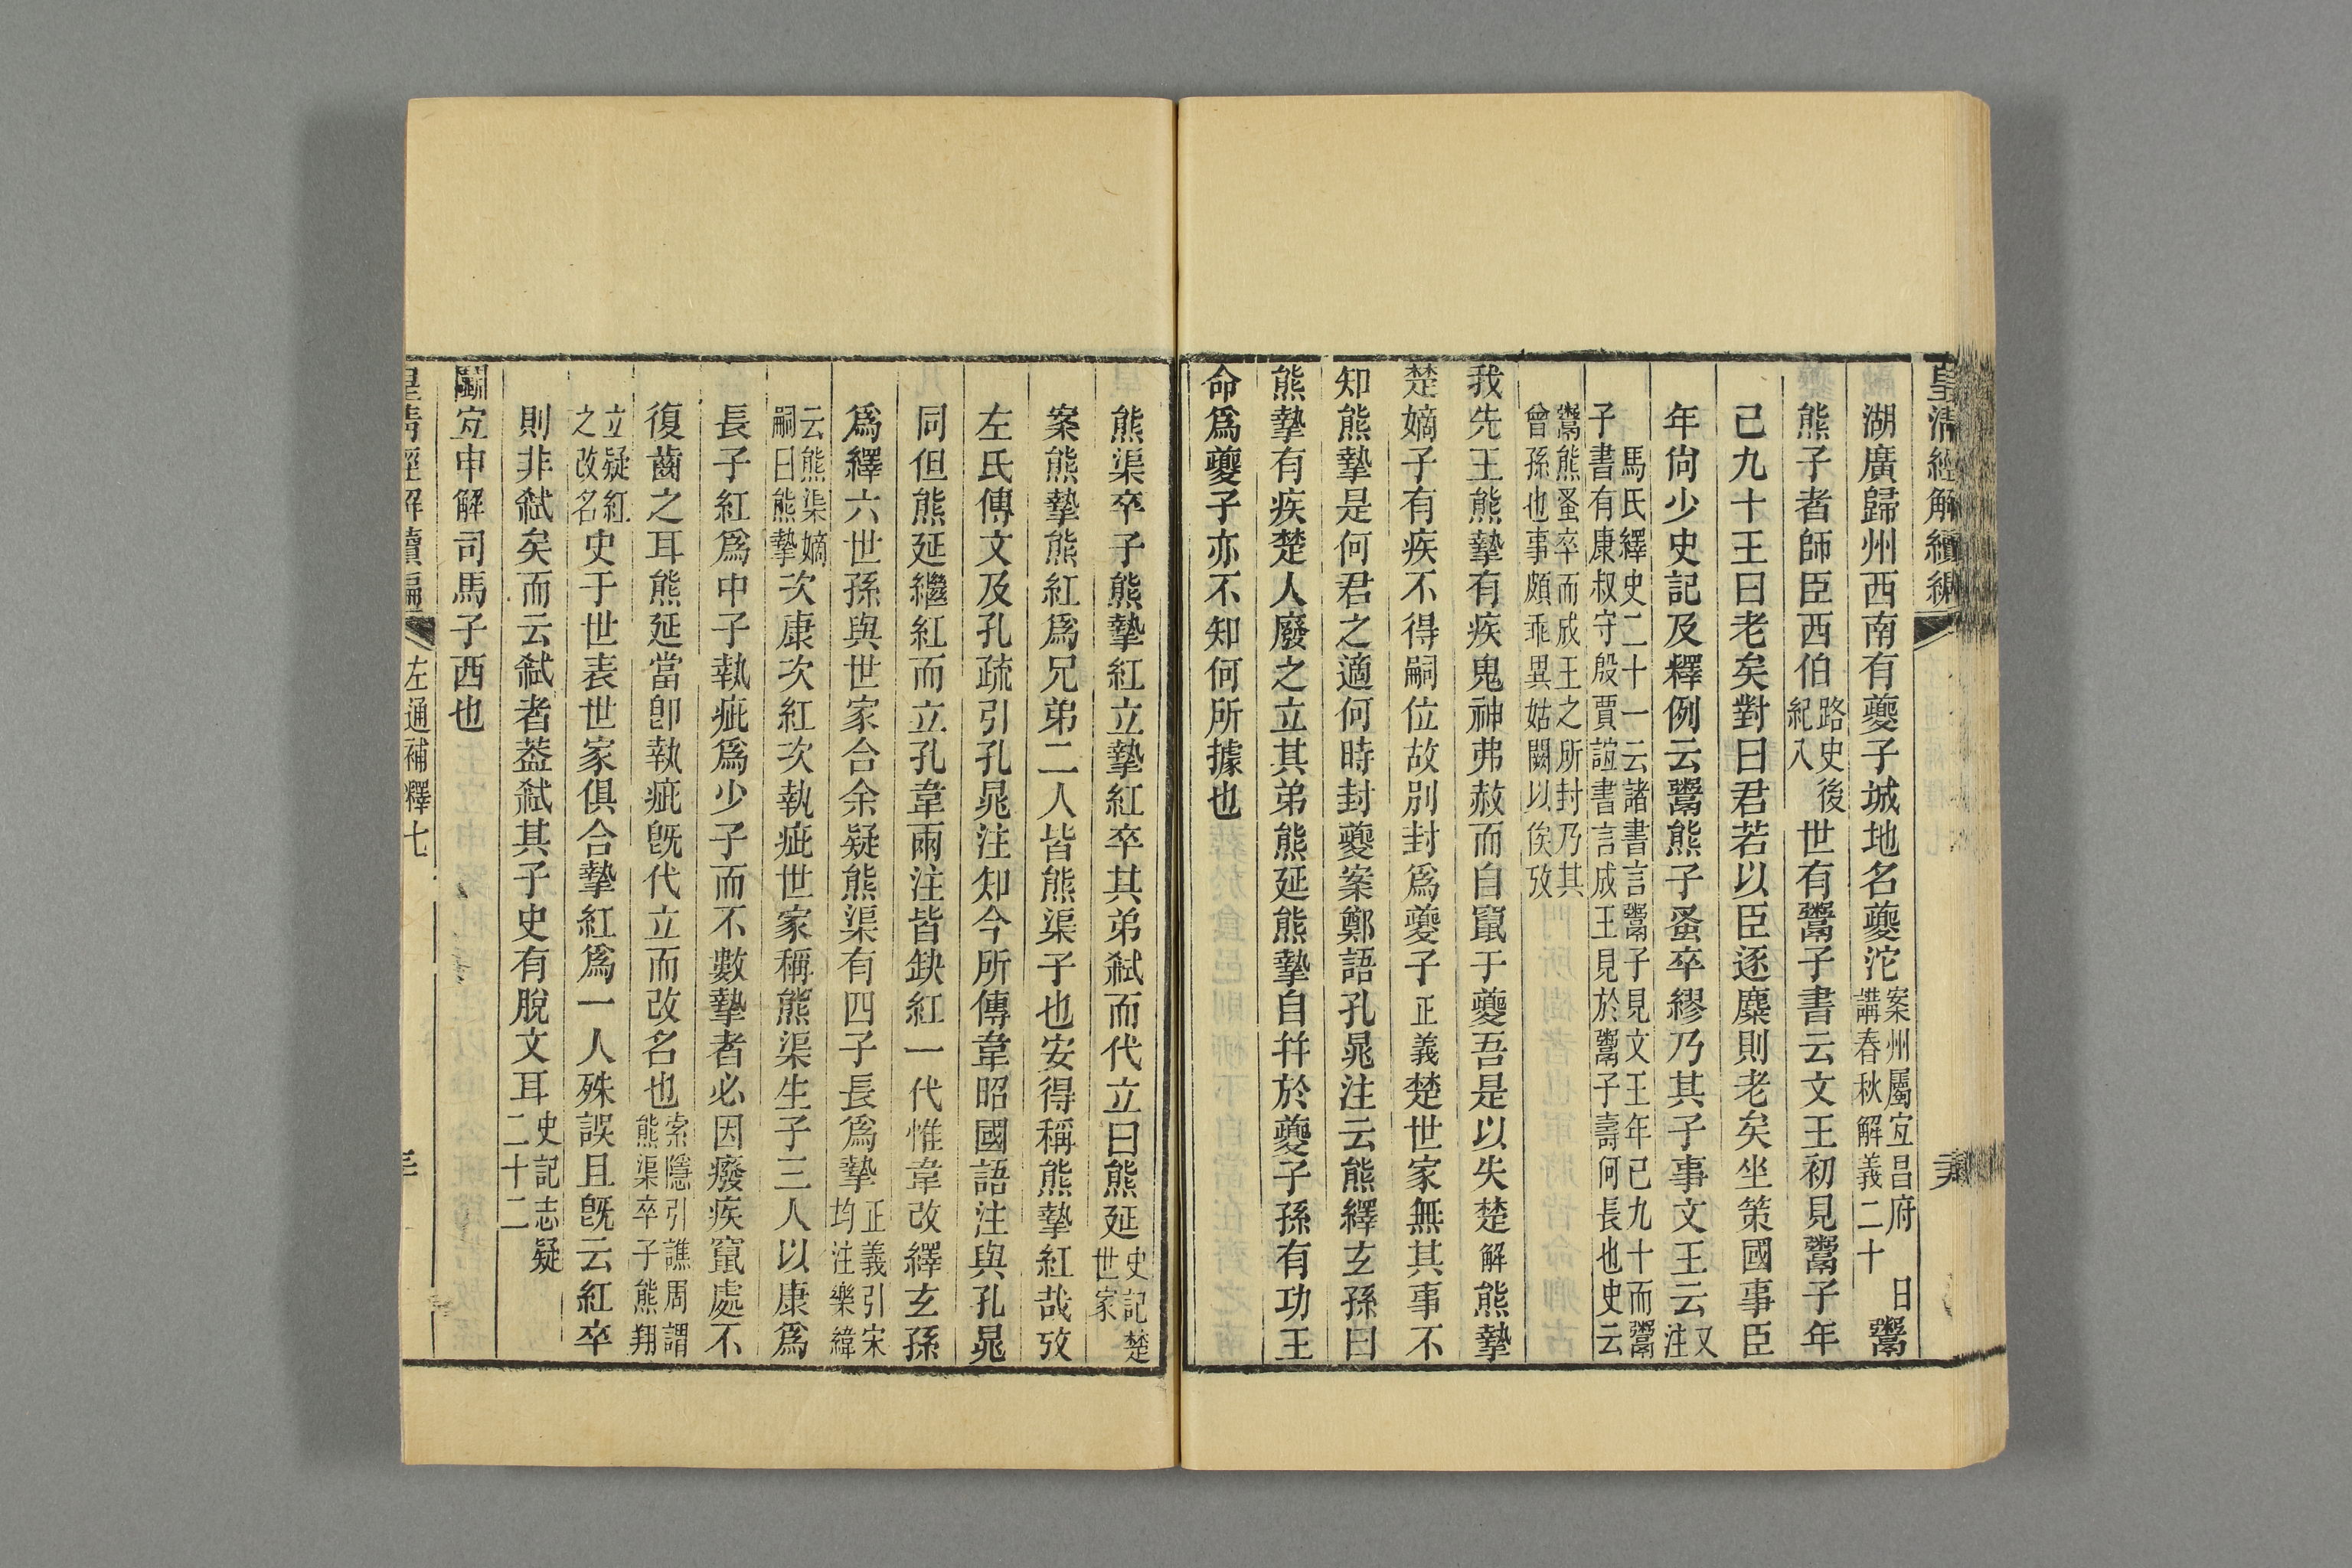 皇清經解續編
湖廣歸州西南有夔子城地名夔沱案州屬宜昌府講春秋解義二十日鬻
熊子者師臣西伯路史後紀八世有鬻子書云文王初見鬻子年
已九十王曰老矣對曰君若以臣逐麋則老矣坐策國事臣
年尙少史記及釋例云鬻熊子蚤卒繆乃其子事文王云又注
馬氏繹史二十一云諸書言鬻子見文王年已九十而鬻子書有康叔守殷賈誼書言成王見於鬻子壽何長也史云
鬻熊蚤卒而成王之所封乃其曾孫也事頗乖異姑闕以俟攷
我先王熊摯有疾鬼神弗赦而自竄于夔吾是以失楚解熊摯
楚嫡子有疾不得嗣位故別封爲夔子正義楚世家無其事不
知熊摯是何君之適何時封夔案鄭語孔晁注云熊繹玄孫曰
熊摯有疾楚人廢之立其弟熊延熊摯自幷於夔子孫有功王
命爲夔子亦不知何所據也
熊渠卒子熊摯紅立摯紅卒其弟弑而代立曰熊延史記楚世家
案熊摯熊紅爲兄弟二人皆熊渠子也安得稱熊摯紅哉攷
左氏傳文及孔疏引孔晁注知今所傳韋昭國語注與孔晁
同但熊延繼紅而立孔韋兩注皆缺紅一代惟韋改繹玄孫
爲繹六世孫與世家合余疑熊渠有四子長爲摯正義引宋均注樂緯
云熊渠嫡嗣曰熊摯次康次紅次執疵世家稱熊渠生子三人以康爲
長子紅爲中子執疵爲少子而不數摯者必因癈疾竄處不
復齒之耳熊延當卽執疵旣代立而改名也索隱引譙周謂熊渠卒子熊翔
立疑紅之改名史于世表世家俱合摯紅爲一人殊誤且旣云紅卒
則非弑矣而云弑者葢弑其子史有脫文耳史記志疑二十二
鬭宜申解司馬子西也
皇清經解續編
左通補釋七